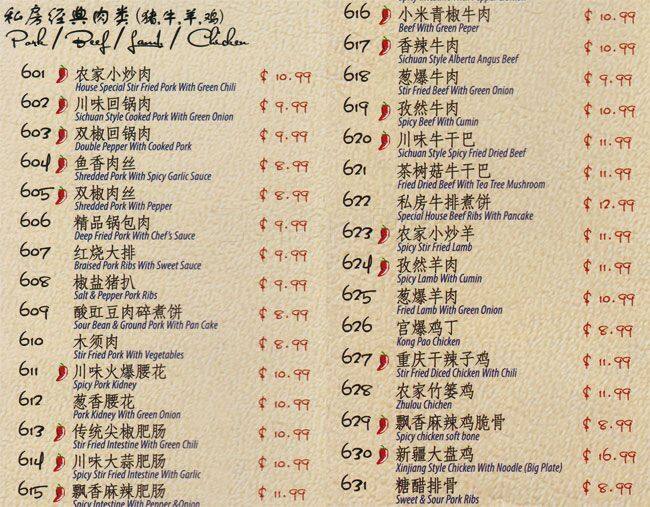 私房经典肉类(猪,牛,羊,鸡)
Pork / Beef / Lamb / Chicken
601 农家小炒肉 ¢ 10.99
House Special Stir Fried Pork With Green Chili
602 川味回锅肉 ¢ 9.99
Sichuan Style Cooked Pork With Green Onion
603 双椒回锅肉 ¢ 9.99
Double Pepper With Cooked Pork
604 鱼香肉丝 ¢ 8.99
Shredded Pork With Spicy Garlic Sauce
605 双椒肉丝 ¢ 8.99
Shredded Pork With Pepper
606 精品锅包肉 ¢ 9.99
Deep Fried Pork With Chef's Sauce
607 红烧大排 ¢ 9.99
Braised Pork Ribs With Sweet Sauce
608 椒盐猪扒 ¢ 9.99
Salt & Pepper Pork Ribs
609 酸豇豆肉碎煮饼 ¢ 8.99
Sour Bean & Ground Pork With Pan Cake
610 木须肉 ¢ 8.99
Stir Fried Pork With Vegetables
611 川味火爆腰花 ¢ 10.99
Spicy Pork Kidney
612 葱香腰花 ¢ 10.99
Pork Kidney With Green Onion
613 传统尖椒肥肠 ¢ 10.99
Stir Fried Intestine With Green Chili
614 川味大蒜肥肠 ¢ 10.99
Spicy Stir Fried Intestine With Garlic
615 飘香麻辣肥肠 ¢ 11.99
Spicy Intestine With Pepper &Onion
616 小米青椒牛肉 ¢ 10.99
Beef With Green Peper
617 香辣牛肉 ¢ 10.99
Sichuan Style Alberta Angus Beef
618 葱爆牛肉 ¢ 9.99
Stir Fried Beef With Green Onion
619 孜然牛肉 ¢ 10.99
Spicy Beef With Cumin
620 川味牛干巴 ¢ 11.99
Sichuan Style Spicy Fried Dried Beef
621 茶树菇牛干巴 ¢ 11.99
Fried Dried Beef With Tea Tree Mushroom
622 私房牛排煮饼 ¢ 12.99
Special House Beef Ribs With Pancake
623 农家小炒羊 ¢ 11.99
Spicy Stir Fried Lamb
624 孜然羊肉 ¢ 11.99
Spicy Lamb With Cumin
625 葱爆羊肉 ¢ 10.99
Fried Lamb With Green Onion
626 官爆鸡丁 ¢ 8.99
Kong Pao Chicken
627 重庆干辣子鸡 ¢ 11.99
Stir Fried Diced Chicken With Chili
628 农家竹篓鸡 ¢ 11.99
Zhulou Chichen
629 飘香麻辣鸡脆骨 ¢ 8.99
Spicy chicken soft bone
630 新疆大盘鸡 ¢ 16.99
Xinjiang Style Chicken With Noodle (Big Plate)
631 糖醋排骨 ¢ 8.99
Sweet & Sour Pork Ribs